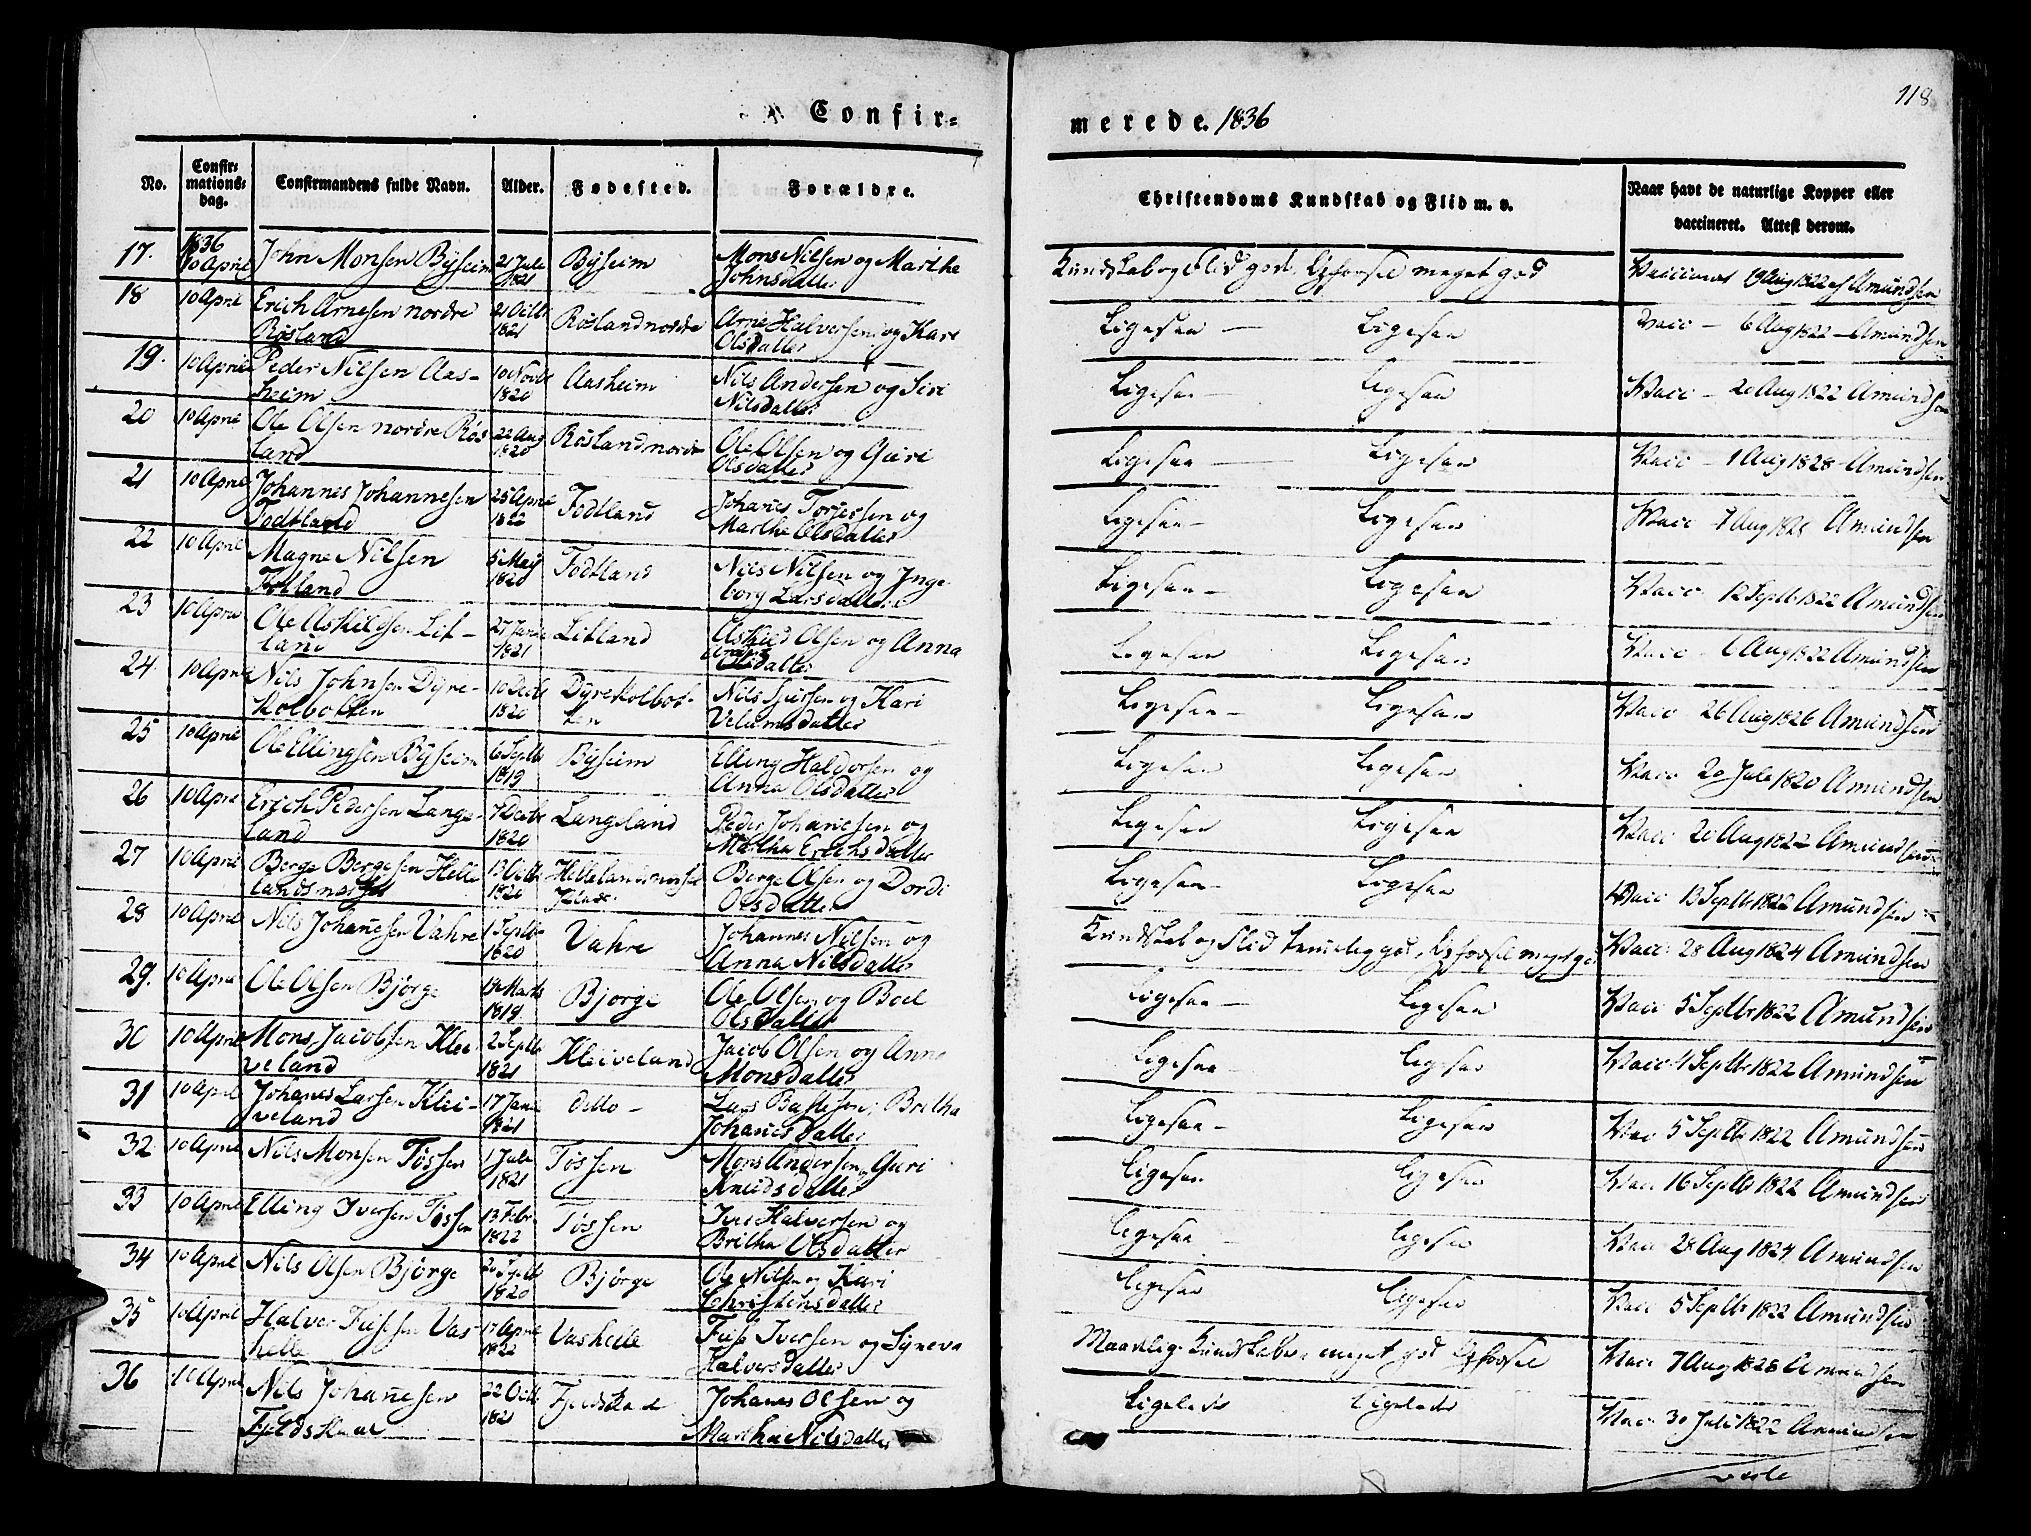 118
Confir=
merede. 1836
No. Confir= mations= dag. Confirmandens fulde Navn. Alder. Fødested. Forældre. Christendoms Kundskab og Flid m. v. Naar havt de naturlige Kopper eller vaccineret. Attest derom.
17. 1836 10 April John Monsen Byseim 21 Jule 1821 Bysheim Mons Nilsen og Marthe Johnsdatter Kundskab og Flid god. Opførsel meget god Vaccineret 19 Aug 1822 af Amundsen
18 10 April Erich Arnesen nordre Røsland 21 Octbr 1821 Røsland nordre Arne Halversen og Kari Olsdatter Ligesaa — Ligesaa Vacc — 6 Aug 1822 — Amundsen
19. 10 April Peder Nilsen Aas- heim 10 Novbr 1820 Aasheim Nils Andersen og Siri Nilsdatter Ligesaa — Ligesaa Vacc — 20 Aug 1822 Amundsen
20 10 April Ole Olsen nordre Røs land 22 Aug 1820 Røsland nordre Ole Olsen og Guri Olsdatter Ligesaa — Ligesaa Vacc — 1 Aug 1828 Amundsen
21 10 April Johannes Johannesen Fodtland 25 April 1822 Fodtland Johanes Torjersen og Martha Olsdatter Ligesaa — Ligesaa Vacc Aug Amundsen
22 10 April Magne Nilsen Fotland 5 May 1820 Fodtland Nils Nilsen og Inge borg Larsdatter Ligesaa — Ligesaa Vacc. 12 Septbr 1822 Amundsen
23 10 April Ole Askildsen Lit- land 27 1821 Litland Askild Olsen og Anna Ligesaa Ligesaa Vacc — 6 Aug 1822 Amundsen
24. 10 April Nils Johnsen Dyre- kolbotten 10 Decbr 1820 Dyrekolbot- ten Nils og Kari Ligesaa — Ligesaa Vacc 26 Aug 1826 Amundsen
25 10 April Ole Ellingsen Byseim 6 Septbr 1819 Byseim Elling Haldorsen og Anna Olsdatter Ligesaa Ligesaa Vacc 20 Jule 1820 Amundsen
26 10 April Erich Pedersen Lange- land 7 Decbr 1820 Langeland Peder Johanesen og Martha Erichsdatter Ligesaa Ligesaa Vacc 20 Aug 1822 Amundsen
27 10 April Berge Bergesen Helle landsnæsset 13 Octbr 1820 Hellelandsnæsset Berge Olsen og Dordi Olsdatter Ligesaa — Ligesaa Vacc 13 Septbr 1822 Amundsen
28 10 April Nils Johanesen Vahre 1 Septbr 1820 Vahre Johannes Nilsen og Anna Nilsdatter Kundskab og Flid temmelig god, Opførsel meget god Vacc. 28 Aug 1824 Amundsen
29. 10 April Ole Olsen Bjørge 1819 Bjorge Ole Olsen og Boel Olsdatter Ligesaa — Ligesaa Vacc 5 Septbr 1822 Amundsen
30 10 April Mons Jacobsen Klei- veland 2 Septbr 1821 Kleiveland Jacob Olsen og Anna Monsdatter Ligesaa — Ligesaa Vacc. 4 Septbr 1822 Amundsen
31 10 April Johanes Larsen Klei- veland 17 1821 detto — Lars Britha Johanesdatter Ligesaa — Ligesaa Vac 5 Septbr 1822 Amundsen
32 10 April Nils Monsen Tøssen 1 Jule 1821 Tøssen Mons Andersen og Guri Knudsdatter Ligesaa Ligesaa Vacc 16 Septbr 1822 Amundsen
33 10 April Elling Iversen Tøssen 13 Febr 1822 Tøssen Iver Halversen og Britha Olsdatter Ligesaa Ligesaa Vacc 28 Aug 1824 Amundsen
34 10 April Nils Olsen Bjørge 1820 Bjørge Ole Nilsen og Kari Christensdatter Ligesaa Ligesaa Vacc 5 Septbr 1822 Amundsen
35 10 April Halver Fusesen Vas- helle 17 April Vashelle Fuse Iversen og Syneva Halversdatter Maadelig Kundskaber, meget god Opførsel Vacc 7 Aug 1828 Amundsen
36 10 April Nils Johanesen Fjeldskaar 22 Octbr 1821 Johanes Olsen og Martha Nilsdatter Ligeledes Ligeledes Vacc 30 Juli 1822 Amundsen